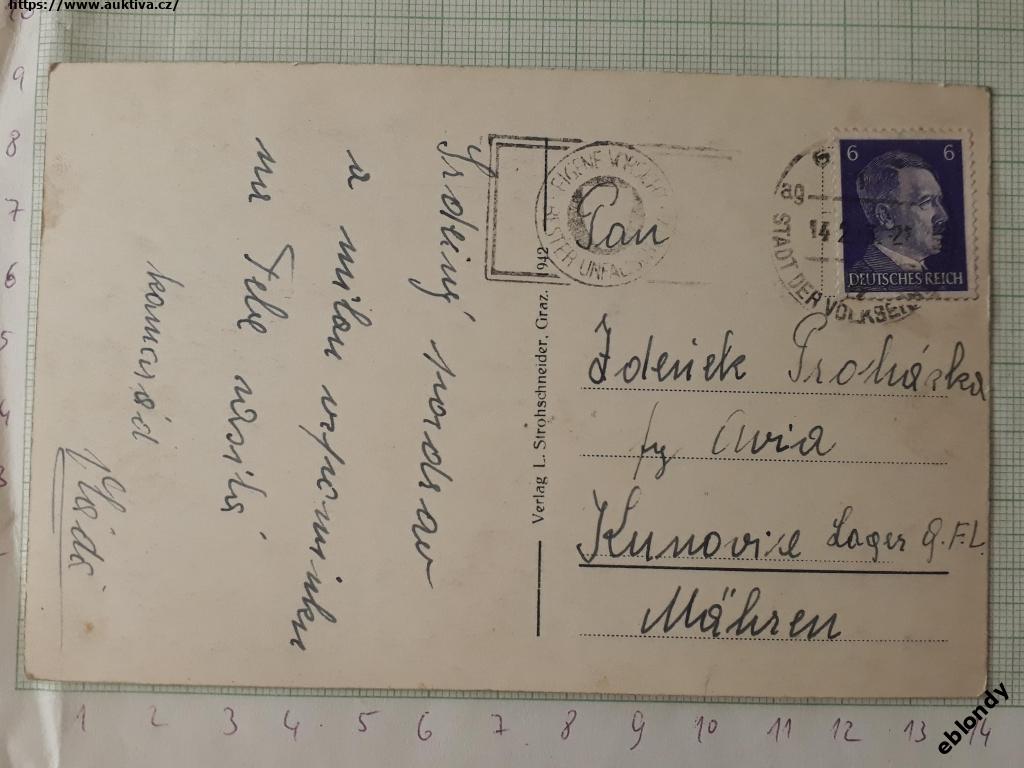 https://www.auktiva.cz/
Srdečný pozdrav
a milou vzpomínku
na Tebe zasílá
kamarád
Vláďa
Verlag L. Strohschneider, Graz. 1942
6 6
DEUTSCHES REICH
14.2
STADT DER VOLKSE
Pan
Zdeněk Procházka
fy Avia
Kunovice Lager Q.F.L.
Mähren
9
8
7
6
5
4
3
1 2 3 4 5 6 7 8 9 10 11 12 13 14
eblondy